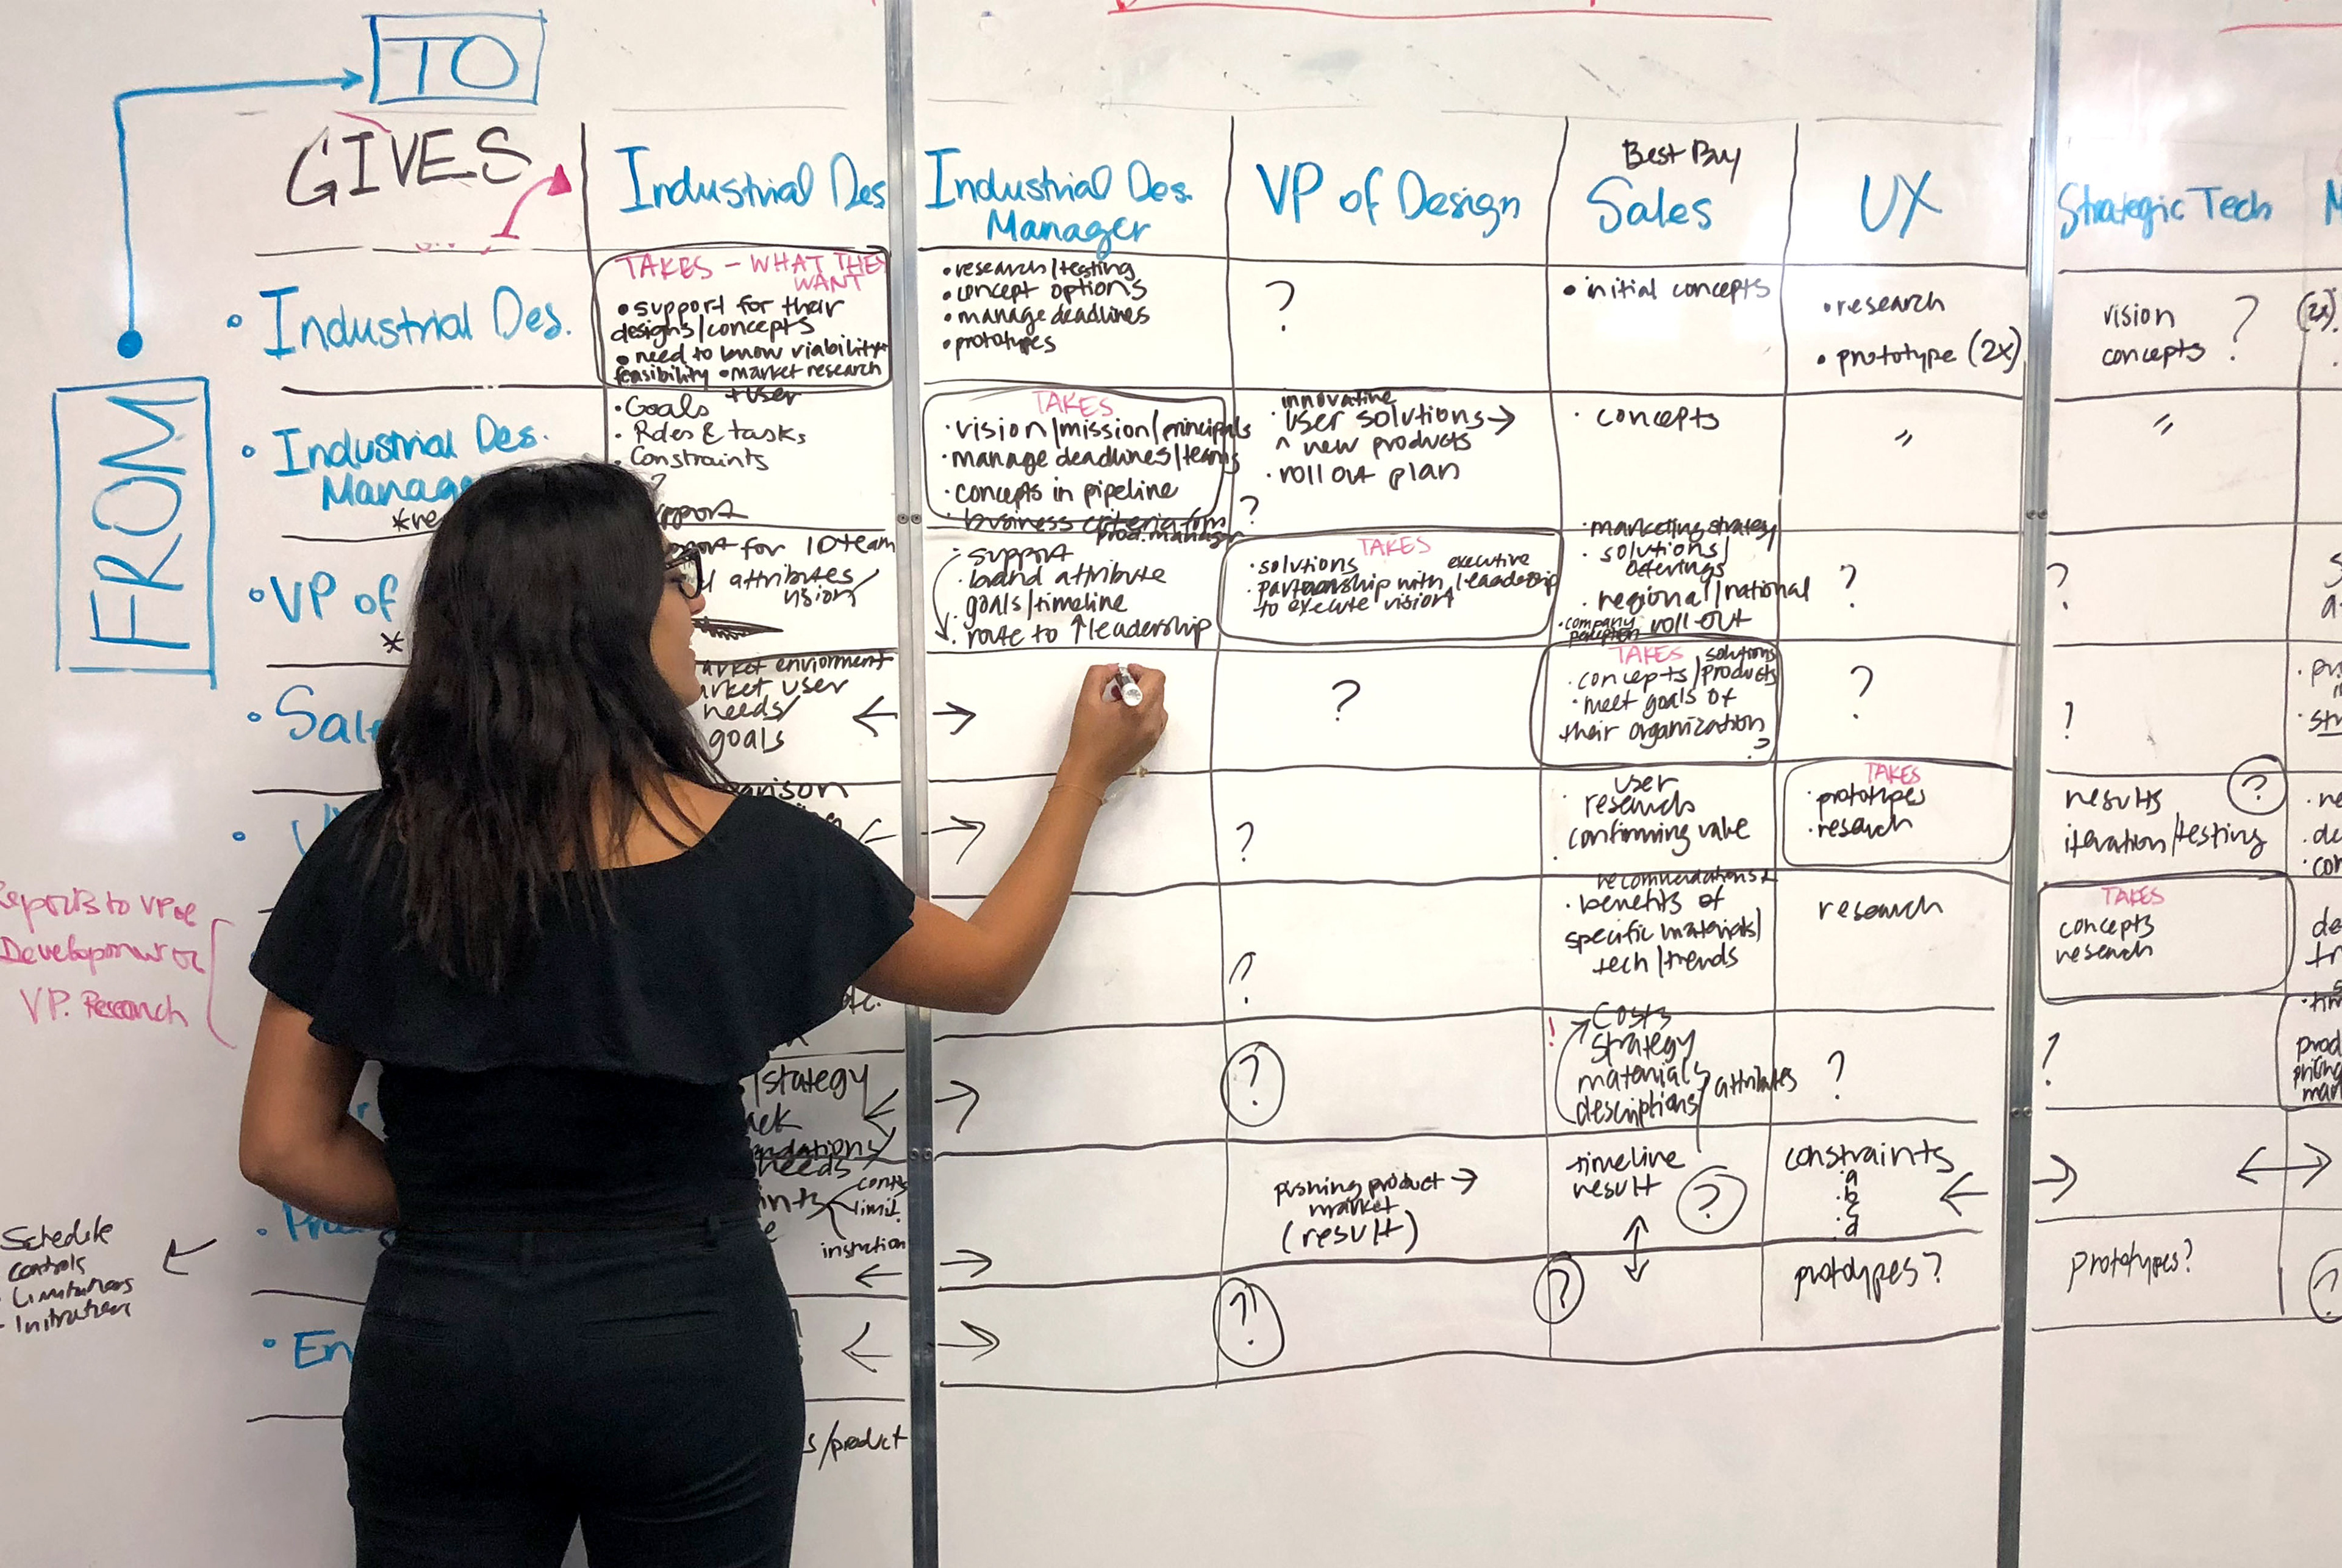 TO
GIVES
FROM
Industrial Des
Industrial Des.
Manager
VP of Design
Best Buy
Sales
UX
Strategic Tech
• Industrial Des.
TAKES - WHAT THEY
WANT
• support for their
designs/concepts
• need to know viability +
feasibility • market research
+ user
• research/testing
• concept options
• manage deadlines
• prototypes
?
• initial concepts
• research
• prototype (2x)
vision
concepts ?
(2x)
• Industrial Des.
Manage
• Goals
• Roles & tasks
• Constraints
?
pport
TAKES
• vision/mission/principals
• manage deadlines/teams
• concepts in pipeline
• business criteria from
prod. manager
innovative
• User solutions →
^ new products
• roll out plan
?
• concepts
"
"
• VP of
*
for ID team
attributes
vision/
• support
• brand attribute
goals/timeline
• route to ↑ leadership
TAKES
• solutions
executive
• partnership with / leadership
to execute vision
• marketing strategy
• solutions/
offerings
• regional/national
roll out
• company
perception
?
?
• Sal
arket enviorment
arket user
needs/
goals
← →
?
TAKES
solutions
• concepts/products
• meet goals of
their organization
?
?
?
← →
?
user
research
confirming value
TAKES
• prototypes
• research
results
iteration/testing
?
Reports to VP of
Development or
VP. Research
?
recommendations +
• benefits of
specific materials/
tech/trends
research
TAKES
concepts
research
/stategy
← →
?
!
Costs
strategy
materials
descriptions / attributes
?
?
needs
limit.
← →
pushing product →
market
(result)
timeline
result
?
constraints
a
b
c
d
← →
↔
Schedule
controls
← →
?
?
prototypes?
prototypes?
?
• En
s/product